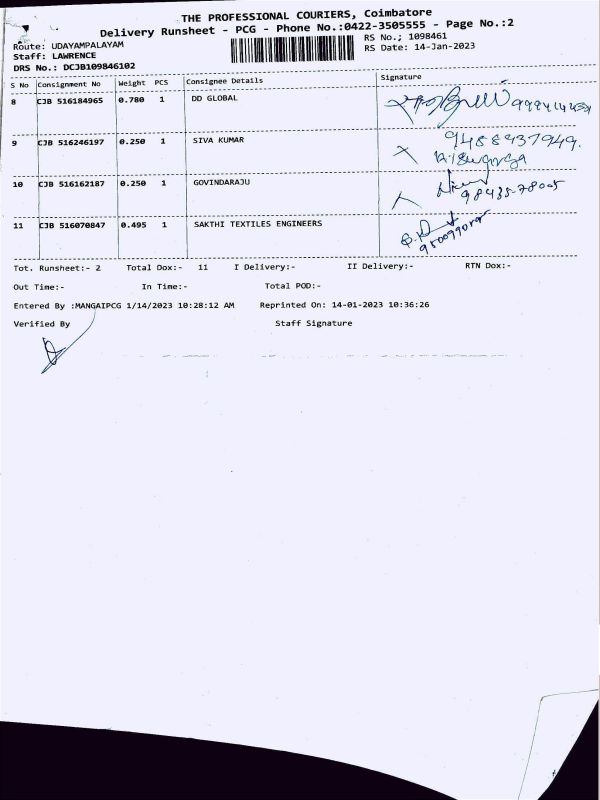 THE PROFESSIONAL COURIERS, Coimbatore
Delivery Runsheet - PCG - Phone No.:0422-3505555 - Page No.:2
Route: UDAYAMPALAYAM
RS No.; 1098461
Staff: LAWRENCE
RS Date: 14-Jan-2023
DRS No.: DCJB109846102
S No Consignment No Weight PCS Consignee Details Signature
8 CJB 516184965 0.780 1 DD GLOBAL
9 CJB 516246197 0.250 1 SIVA KUMAR 9488437949.
10 CJB 516162187 0.250 1 GOVINDARAJU 98435-78005
11 CJB 516070847 0.495 1 SAKTHI TEXTILES ENGINEERS
Tot. Runsheet:- 2 Total Dox:- 11 I Delivery:- II Delivery:- RTN Dox:-
Out Time:- In Time:- Total POD:-
Entered By :MANGAIPCG 1/14/2023 10:28:12 AM Reprinted On: 14-01-2023 10:36:26
Verified By Staff Signature